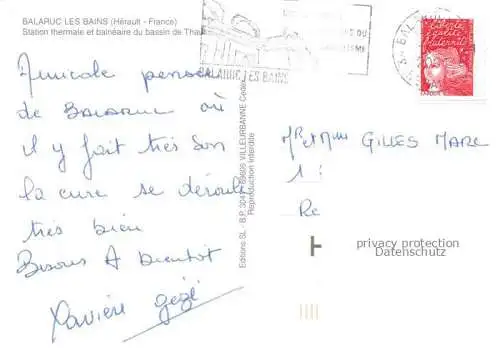 BALARUC LES BAINS (Hérault - France)
Station thermale et balnéaire du bassin de Thau
BALARUC LES BAINS
Liberté
égalité
fraternité
Amicale pensée
de BALARUC où
il y fait très bon
la cure se déroule
très bien
Bisous A bientôt
Xavière gégé
Editions SL - B.P. 3041 69605 VILLEURBANNE Cedex
Reproduction interdite
Mr et Mme GILLES MARC
1
Re
privacy protection
Datenschutz